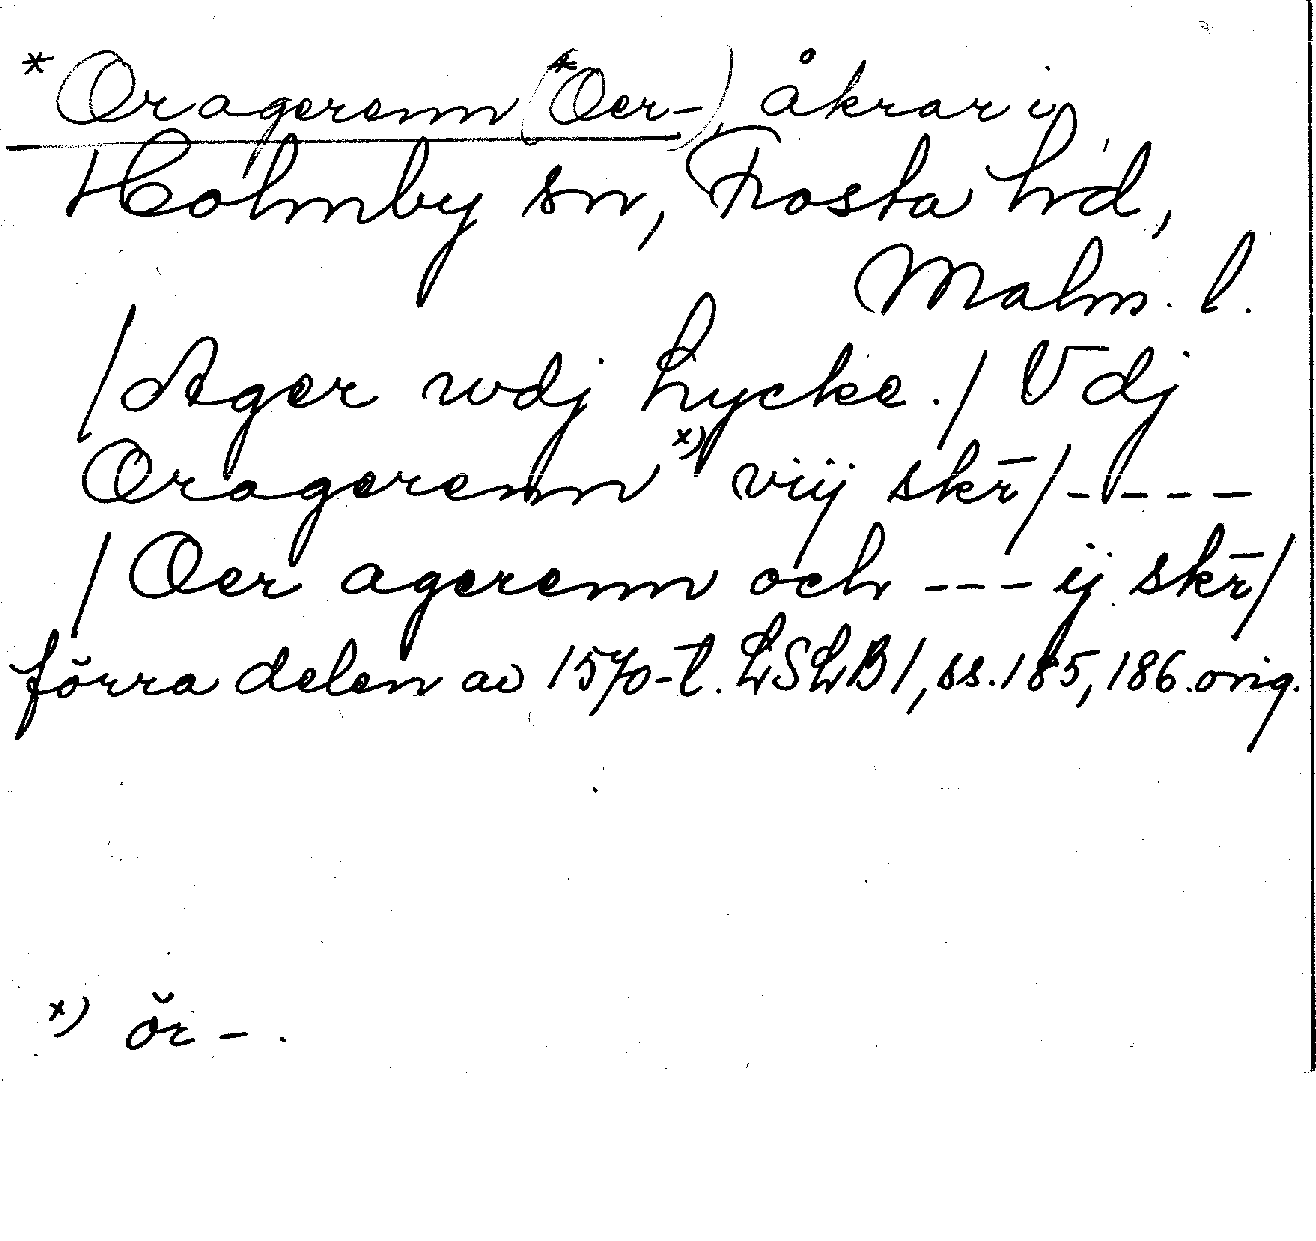 *Oragerenn (*Oer-), åkrar i
Holmby sn, Frosta hd,
Malm. l.
/Ager wdj hycke./ Vdj
Oragerenn x) viij skr̄/ - - - -
/Oer agerenn och --- ij skr̄/
förra delen av 1570-t. LSLB1, ss. 185, 186. orig.
x) ŏr - .